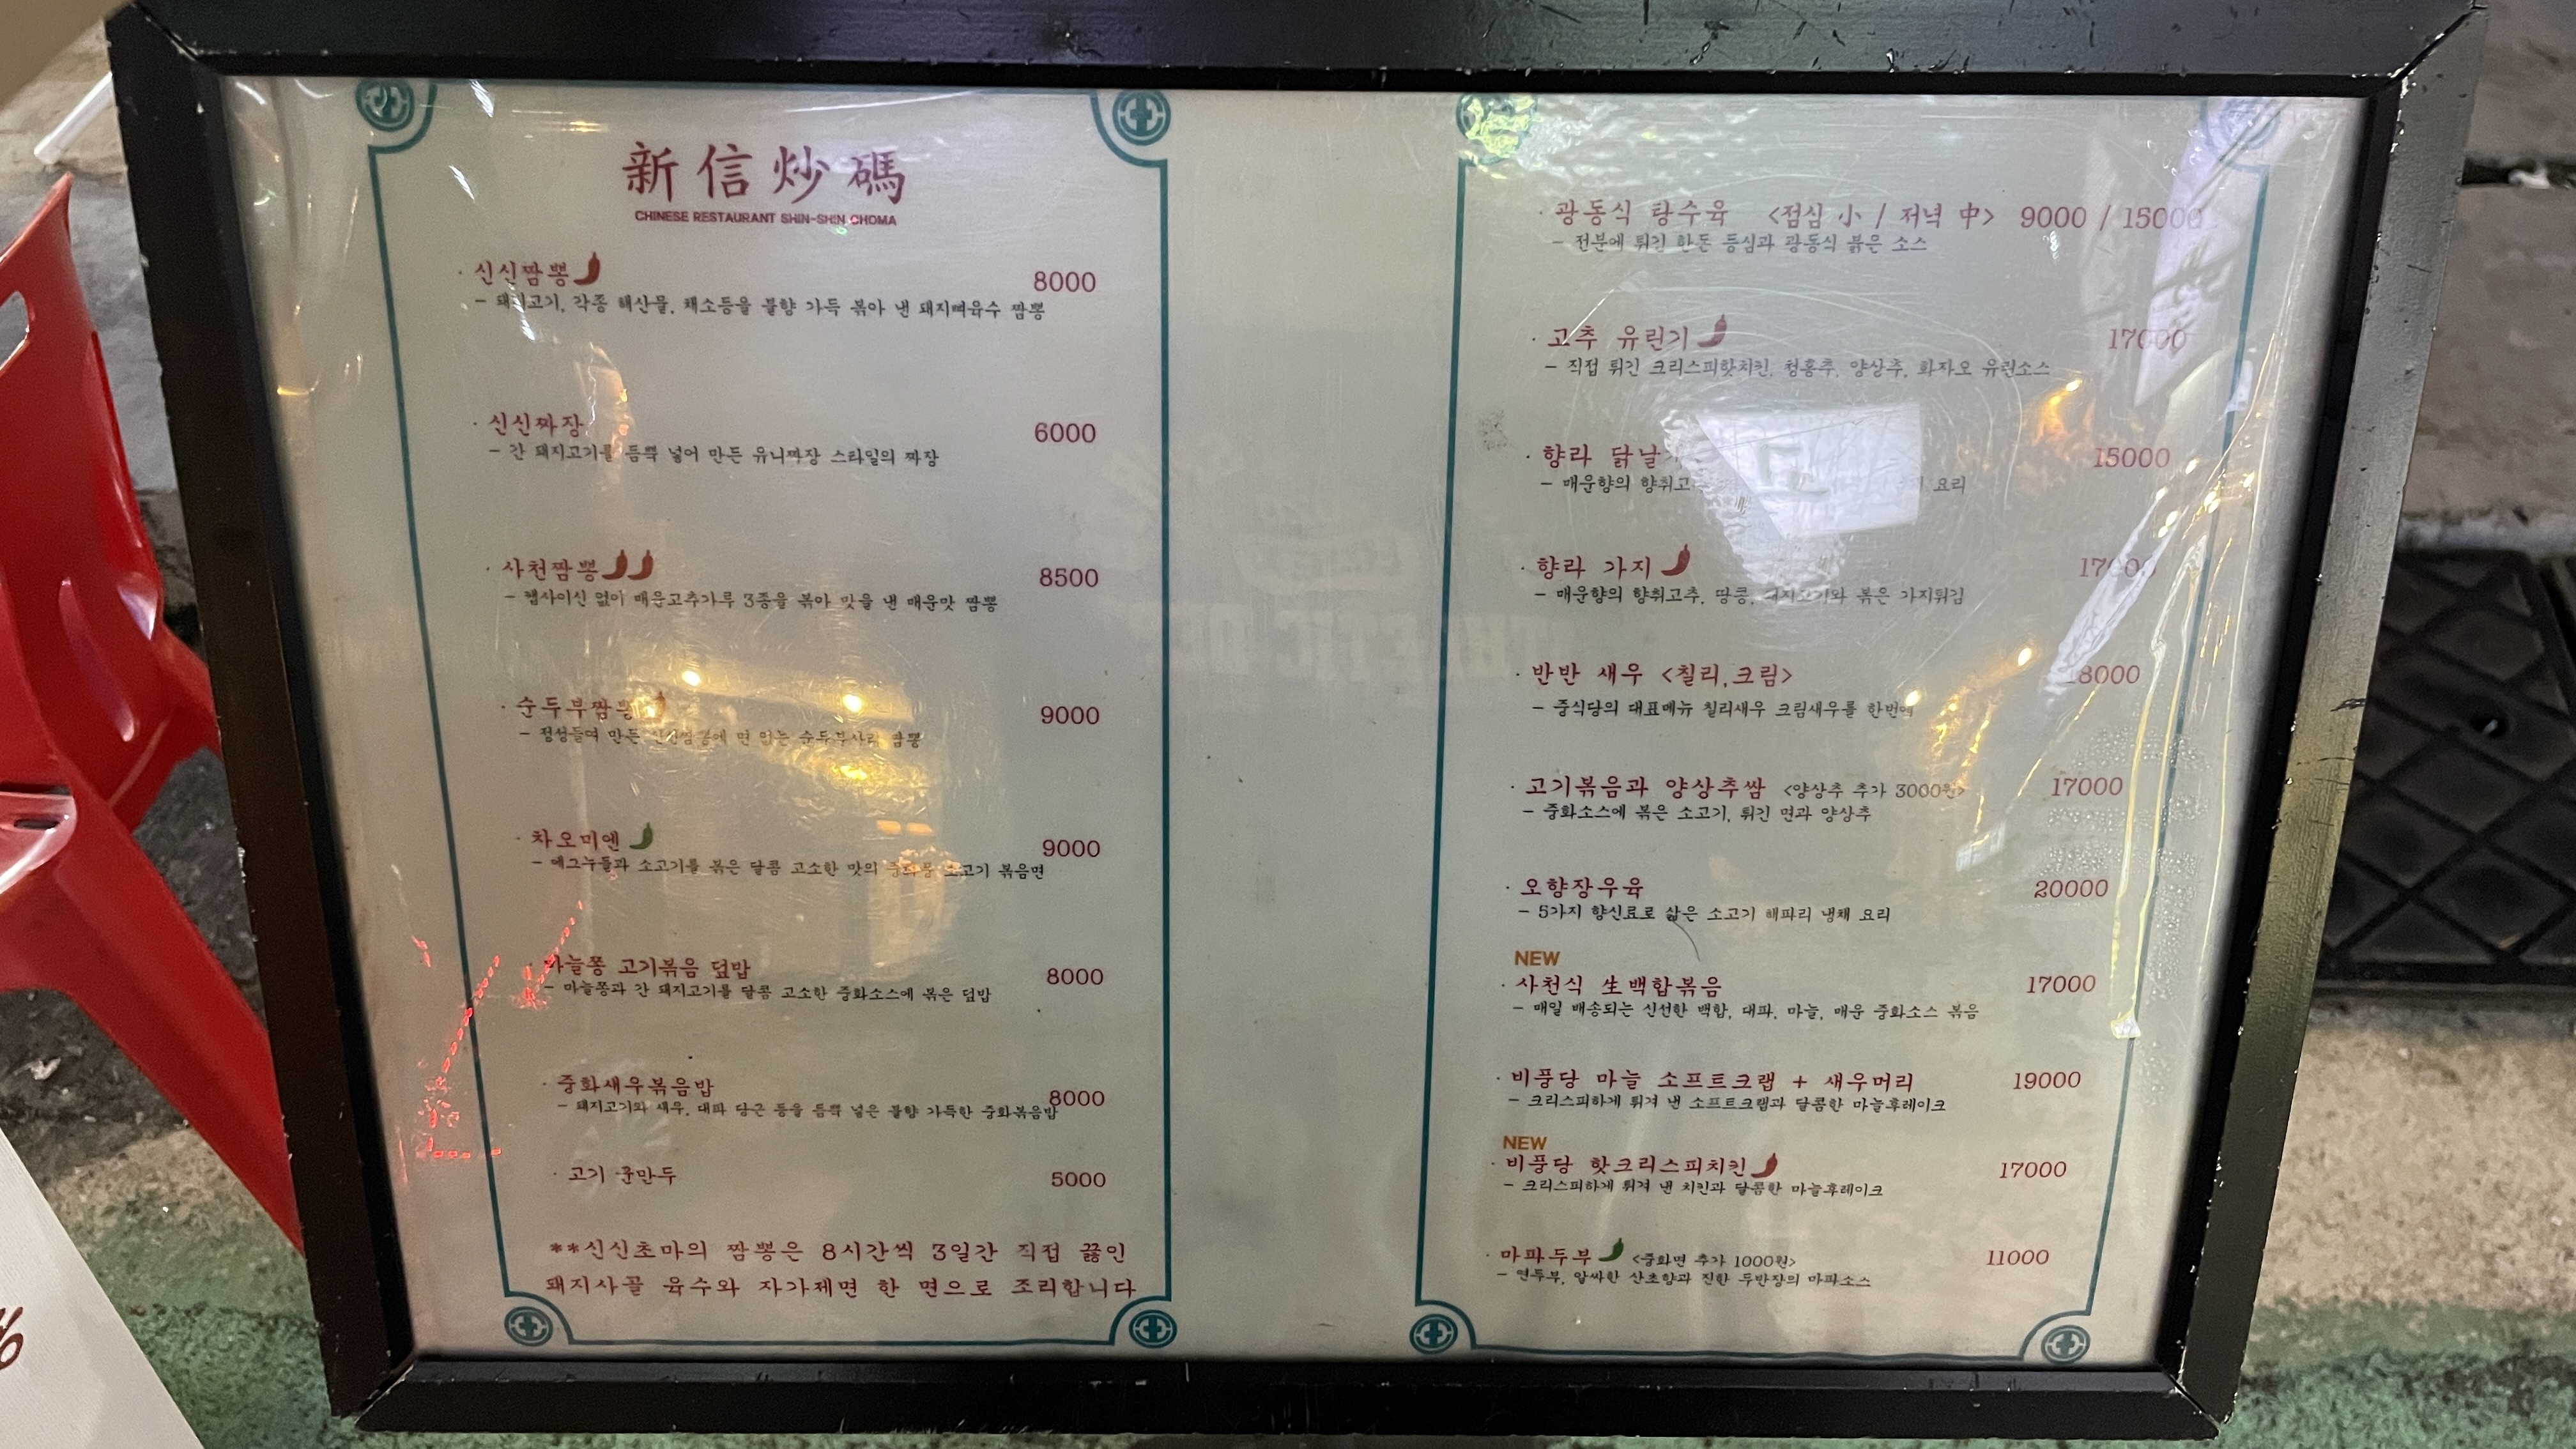 新信炒碼
CHINESE RESTAURANT SHIN-SHIN CHOMA
· 신신짬뽕 8000
- 돼지고기, 각종 해산물, 채소등을 불향 가득 볶아 낸 돼지뼈육수 짬뽕
· 신신짜장 6000
- 간 돼지고기를 듬뿍 넣어 만든 유니짜장 스타일의 짜장
· 사천짬뽕 8500
- 캡사이신 없이 매운고추가루 3종을 볶아 맛을 낸 매운맛 짬뽕
· 순두부짬뽕 9000
- 정성들여 만든 면 없는 순두부사리 짬뽕
· 차오미엔 9000
- 에그누들과 소고기를 볶은 달콤 고소한 맛의 중화풍 소고기 볶음면
마늘쫑 고기볶음 덮밥 8000
- 마늘쫑과 간 돼지고기를 달콤 고소한 중화소스에 볶은 덮밥
· 중화새우볶음밥 8000
- 돼지고기와 새우, 대파 당근 등을 듬뿍 넣은 불향 가득한 중화볶음밥
· 고기 군만두 5000
**신신초마의 짬뽕은 8시간씩 3일간 직접 끓인
돼지사골 육수와 자가제면 한 면으로 조리합니다
· 광동식 탕수육 <점심 小 / 저녁 中> 9000 / 15000
- 전분에 튀긴 한돈 등심과 광동식 붉은 소스
· 고추 유린기 17000
- 직접 튀긴 크리스피핫치킨, 청홍추, 양상추, 화자오 유린소스
· 향라 15000
- 매운향의 요리
· 향라 가지 17000
- 매운향의 향취고추, 땅콩, 돼지고기와 볶은 가지튀김
· 반반 새우 <칠리,크림> 18000
- 중식당의 대표메뉴 칠리새우 크림새우를 한번에
· 고기볶음과 양상추쌈 <양상추 추가 3000원> 17000
- 중화소스에 볶은 소고기, 튀긴 면과 양상추
· 오향장우육 20000
- 5가지 향신료로 삶은 소고기 해파리 냉채 요리
NEW
· 사천식 生백합볶음 17000
- 매일 배송되는 신선한 백합, 대파, 마늘, 매운 중화소스 볶음
· 비풍당 마늘 소프트크랩 + 새우머리 19000
- 크리스피하게 튀겨 낸 소프트크랩과 달콤한 마늘후레이크
NEW
· 비풍당 핫크리스피치킨 17000
- 크리스피하게 튀겨 낸 치킨과 달콤한 마늘후레이크
· 마파두부 <중화면 추가 1000원> 11000
- 연두부, 알싸한 산초향과 진한 두반장의 마파소스